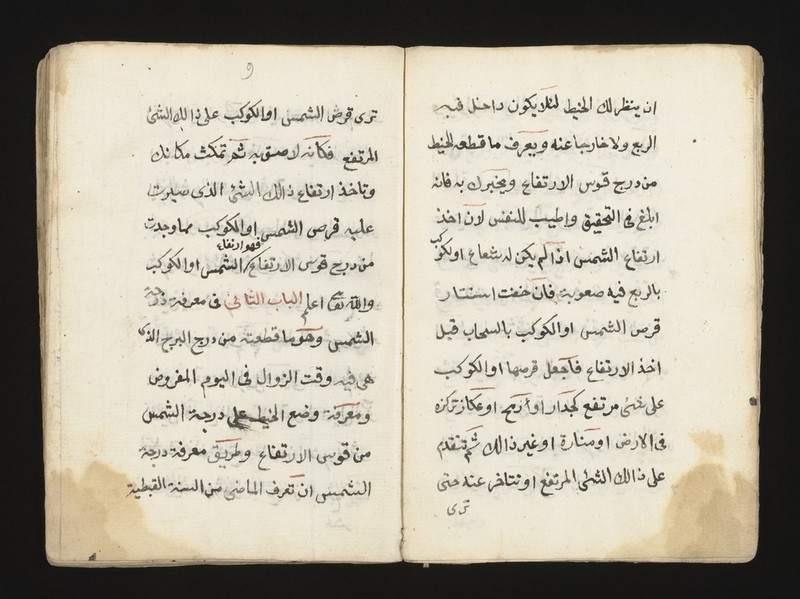 ان ينظر لك الخيط لئلا يكون داخل فيه
الربع ولا خارجا عنه ويعرف ما قطعه الخيط
من درج قوس الارتفاع ويخبرك به فانه
ابلغ في التحقيق واطيب للنفس لان اخذ
ارتفاع الشمس اذا لم يكن له شعاع او لكوكب
بالربع فيه صعوبة فان خفت استتار
قرص الشمس او الكوكب بالسحاب قبل
اخذ الارتفاع فاجعل قرصها او الكوكب
على شئ مرتفع كجدار او رمح او عكاز تركزه
في الارض او منارة او غير ذالك ثم تتقدم
على ذالك الشئ المرتفع او تتاخر عنه حتى
ترى
9
ترى قرص الشمس او الكوكب على ذالك الشئ
المرتفع فكانه لاصق به ثم تمكث مكانك
وتاخذ ارتفاع ذالك الشئ الذى صيرت
عليه قرص الشمس او الكوكب مما وجدت
فهو ارتفاع
من درج قوس الارتفاع الشمس او الكوكب
والله تعالى اعلم الباب الثانى فى معرفة درجة
الشمس وهو ما قطعته من درج البرج الذى
هى فيه وقت الزوال فى اليوم المفروض
ومعرفة وضع الخيط على درجة الشمس
من قوس الارتفاع وطريق معرفة درجة
الشمس ان تعرف الماضى من السنة القبطية